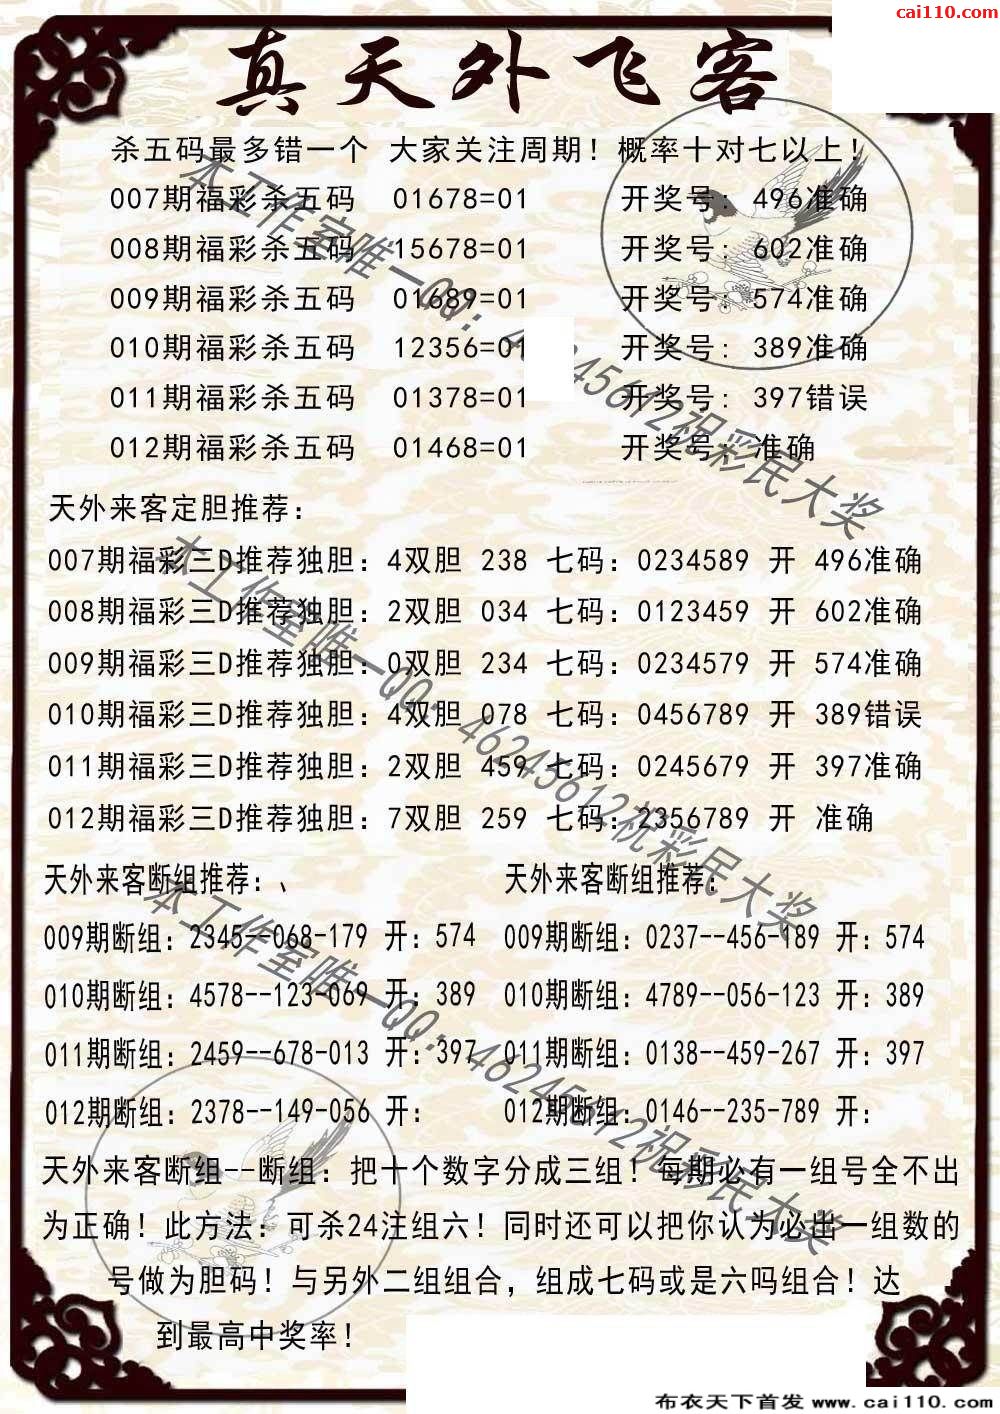 cai110.com
真天外飞客
杀五码最多错一个 大家关注周期！概率十对七以上！
007期福彩杀五码 01678=01 开奖号：496准确
008期福彩杀五码 15678=01 开奖号：602准确
009期福彩杀五码 01689=01 开奖号：574准确
010期福彩杀五码 12356=01 开奖号：389准确
011期福彩杀五码 01378=01 开奖号：397错误
012期福彩杀五码 01468=01 开奖号：准确
本工作室唯一QQ：46245612祝彩民大奖
天外来客定胆推荐：
007期福彩三D推荐独胆：4双胆 238 七码：0234589 开 496准确
008期福彩三D推荐独胆：2双胆 034 七码：0123459 开 602准确
009期福彩三D推荐独胆：0双胆 234 七码：0234579 开 574准确
010期福彩三D推荐独胆：4双胆 078 七码：0456789 开 389错误
011期福彩三D推荐独胆：2双胆 459 七码：0245679 开 397准确
012期福彩三D推荐独胆：7双胆 259 七码：2356789 开 准确
本工作室唯一QQ：46245612祝彩民大奖
天外来客断组推荐：、 天外来客断组推荐：
009期断组：2345--068-179 开：574 009期断组：0237--456-189 开：574
010期断组：4578--123-069 开：389 010期断组：4789--056-123 开：389
011期断组：2459--678-013 开：397 011期断组：0138--459-267 开：397
012期断组：2378--149-056 开： 012期断组：0146--235-789 开：
本工作室唯一QQ：46245612祝彩民大奖
天外来客断组--断组：把十个数字分成三组！每期必有一组号全不出
为正确！此方法：可杀24注组六！同时还可以把你认为必出一组数的
号做为胆码！与另外二组组合，组成七码或是六吗组合！达
到最高中奖率！
布衣天下首发 www.cai110.com